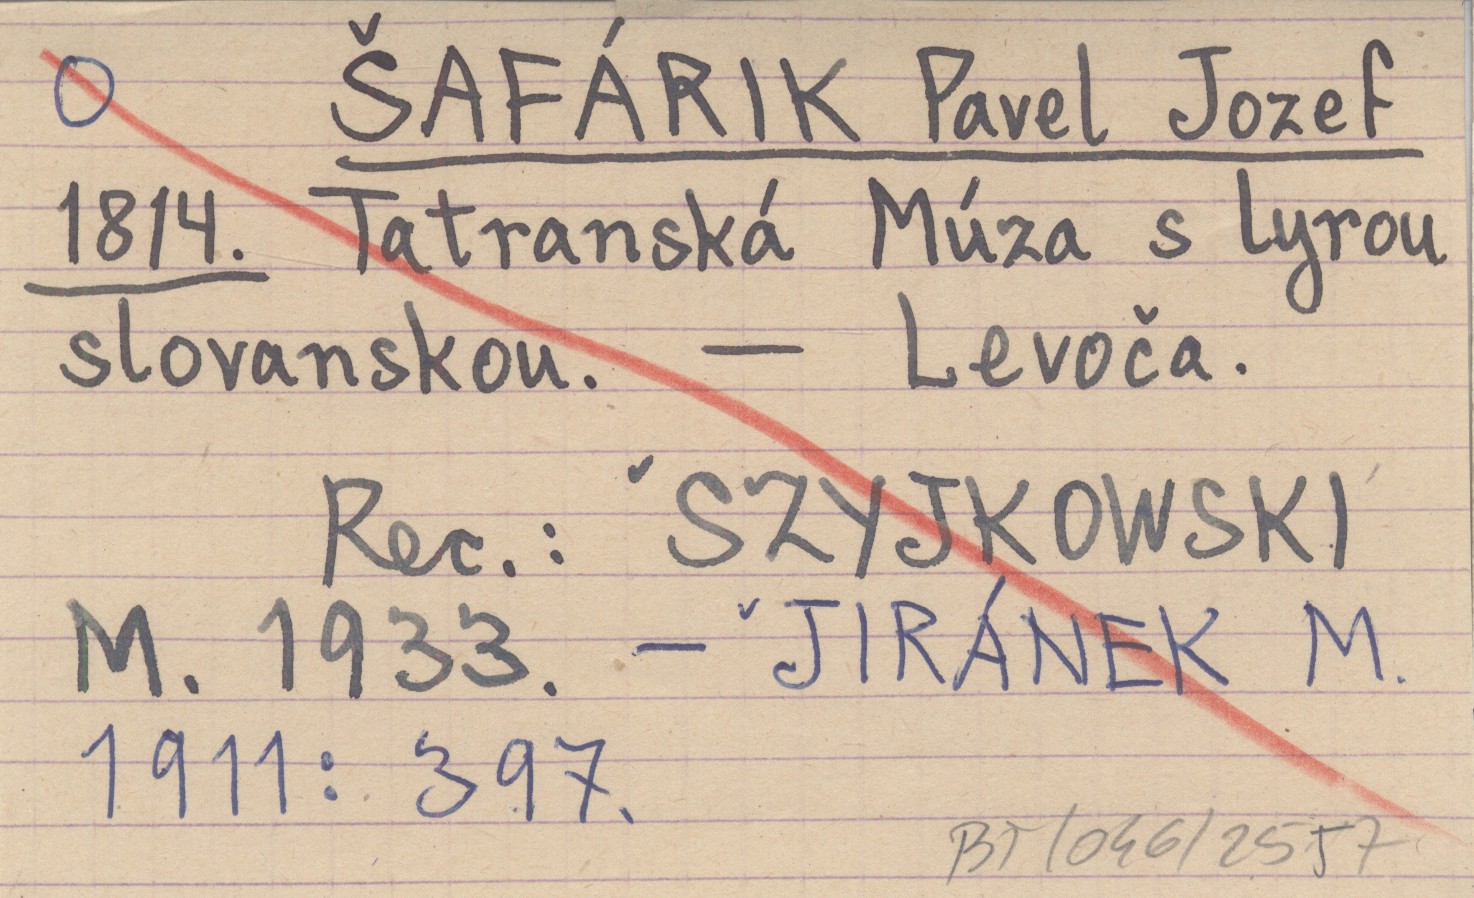 O ŠAFÁRIK Pavel Jozef
1814. Tatranská Múza s lyrou
slovanskou. — Levoča.
Rec.: ˇSZYJKOWSKI
M. 1933. — ˇJIRÁNEK M.
1911: 397.
BT/046/2557